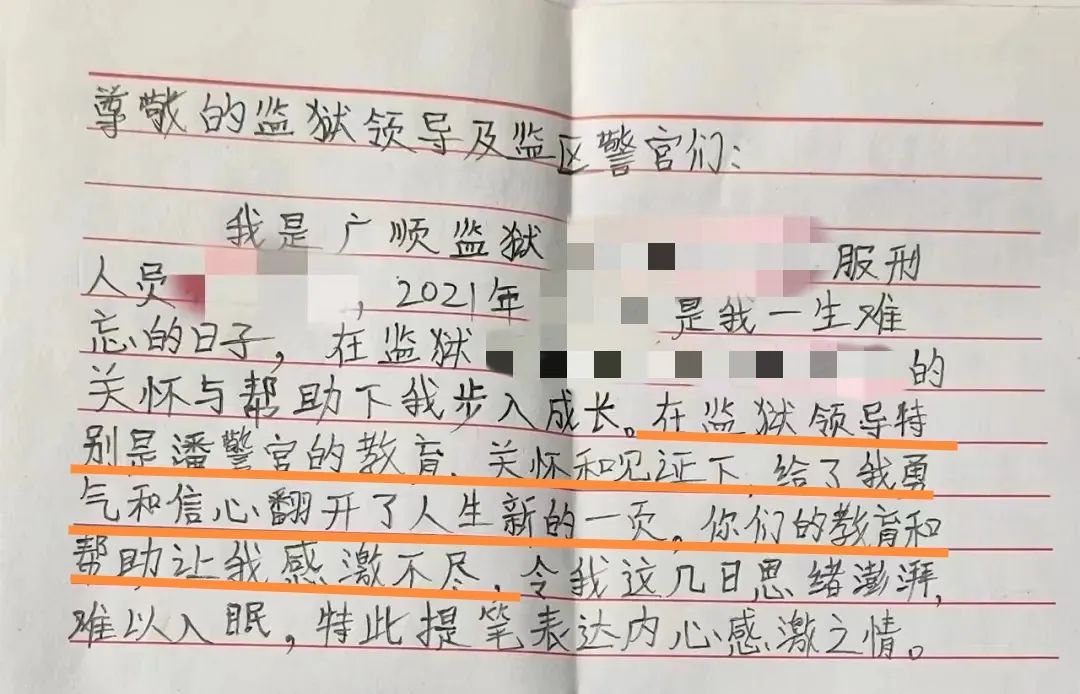 尊敬的监狱领导及监区警官们：
我是广顺监狱 服刑
人员 ，2021年 是我一生难
忘的日子，在监狱 的
关怀与帮助下我步入成长。在监狱领导特
别是潘警官的教育、关怀和见证下，给了我勇
气和信心翻开了人生新的一页。你们的教育和
帮助让我感激不尽，令我这几日思绪澎湃，
难以入眠，特此提笔表达内心感激之情。